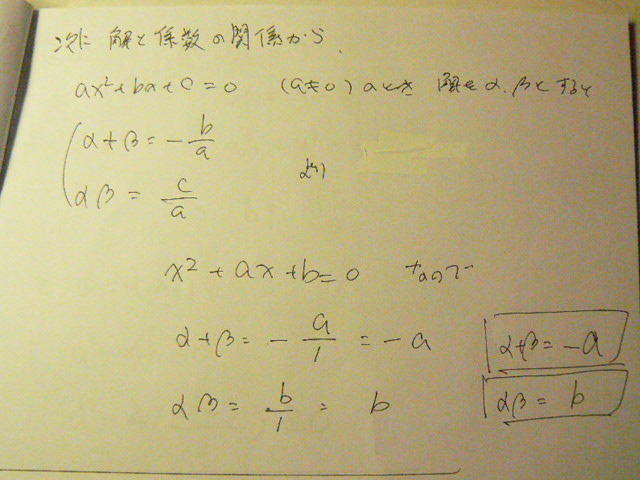 次に 解と係数の関係から、
ax²+bx+c=0 (a≠0) のとき 解をα、βとすると
α+β = -b/a
αβ = c/a より
x²+ax+b=0 なので
α+β = -a/1 = -a
αβ = b/1 = b
α+β=-a
αβ = b